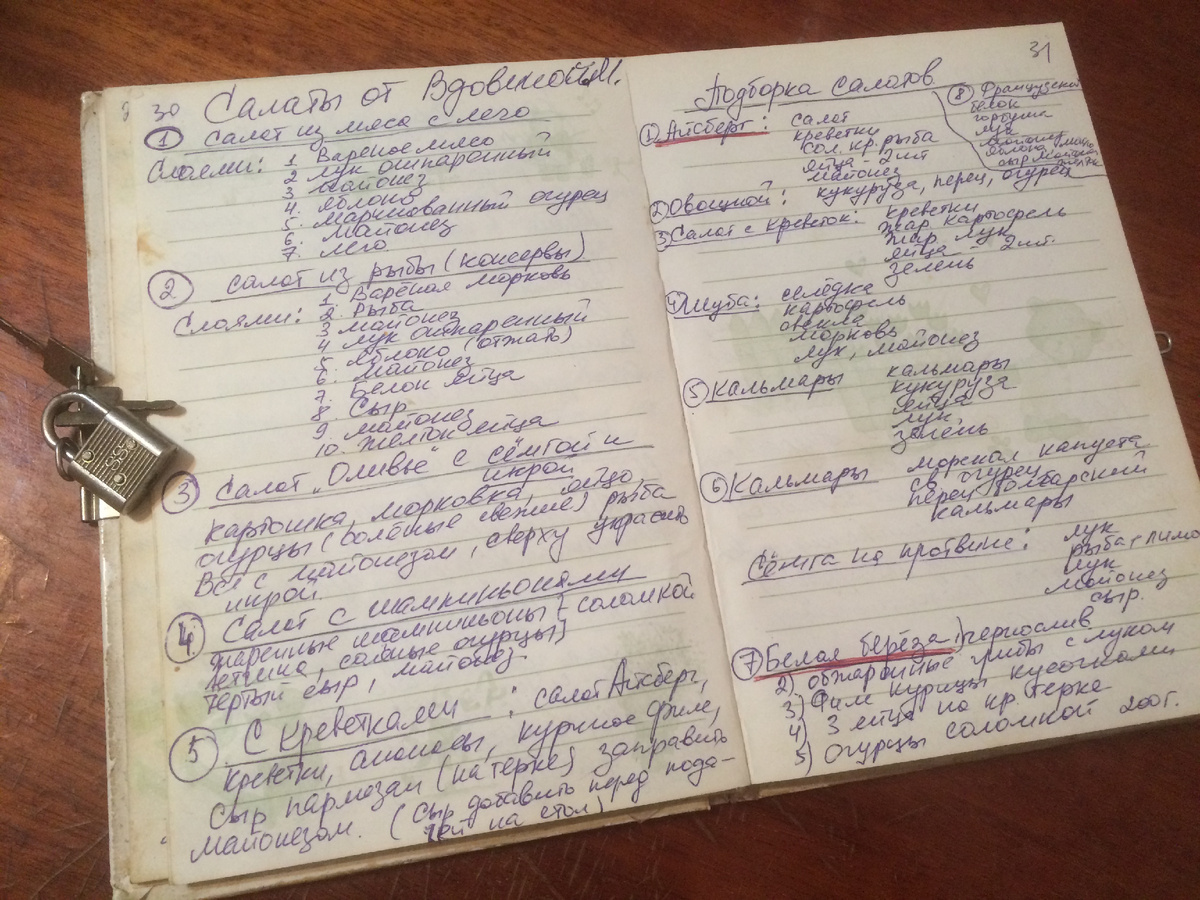 30
Салаты от Вдовиной М.
1 Салат из мяса с лечо
Слоями: 1 Вареное мясо
2 лук ошпаренный
3 майонез
4. яблоко
5. маринованный огурец
6. майонез
7. лечо
2 Салат из рыбы (консервы)
Слоями: 1. Варёная морковь
2. Рыба
3 майонез
4 лук ошпаренный
5 яблоко (отжать)
6. майонез
7. Белок яйца
8. Сыр
9. майонез
10. Желток яйца
3 Салат „Оливье" с сёмгой и
икрой
картошка, морковка, яйцо,
огурцы (солёные свежие) рыба
Всё с майонезом, сверху украсить
икрой
4 Салат с шампиньонами
жаренные шампиньоны } соломкой
ветчина, солёные огурцы }
тёртый сыр, майонез
5 С креветками: салат Айсберг,
креветки, ананасы, куриное филе,
сыр пармезан (на терке) заправить
майонезом. (Сыр добавить перед пода-
чей на стол)
31
Подборка салатов
1 Айсберг: салат
креветки
сол. кр. рыба
яйца - 2 шт
майонез
8 Французский
белок
горбуша
лук
майонез
яблоко
сыр
2 Овощной: кукуруза, перец, огурец
3 Салат с креветок: креветки
жар. картофель
жар. лук
яйца - 2 шт.
зелень
4 Шуба: селёдка
картофель
свекла
морковь
лук, майонез
5 Кальмары кальмары
кукуруза
яйца
лук,
зелень
6 Кальмары морская капуста
св. огурец
перец болгарский
кальмары
Сёмга на протвине: лук
рыба + лимо
лук
майонез
сыр.
7 Белая берёза 1) чернослив
2) обжаренные грибы с луком
3) Филе курицы кусочками
4) 3 яйца на кр. терке
5) Огурцы соломкой 200 г.